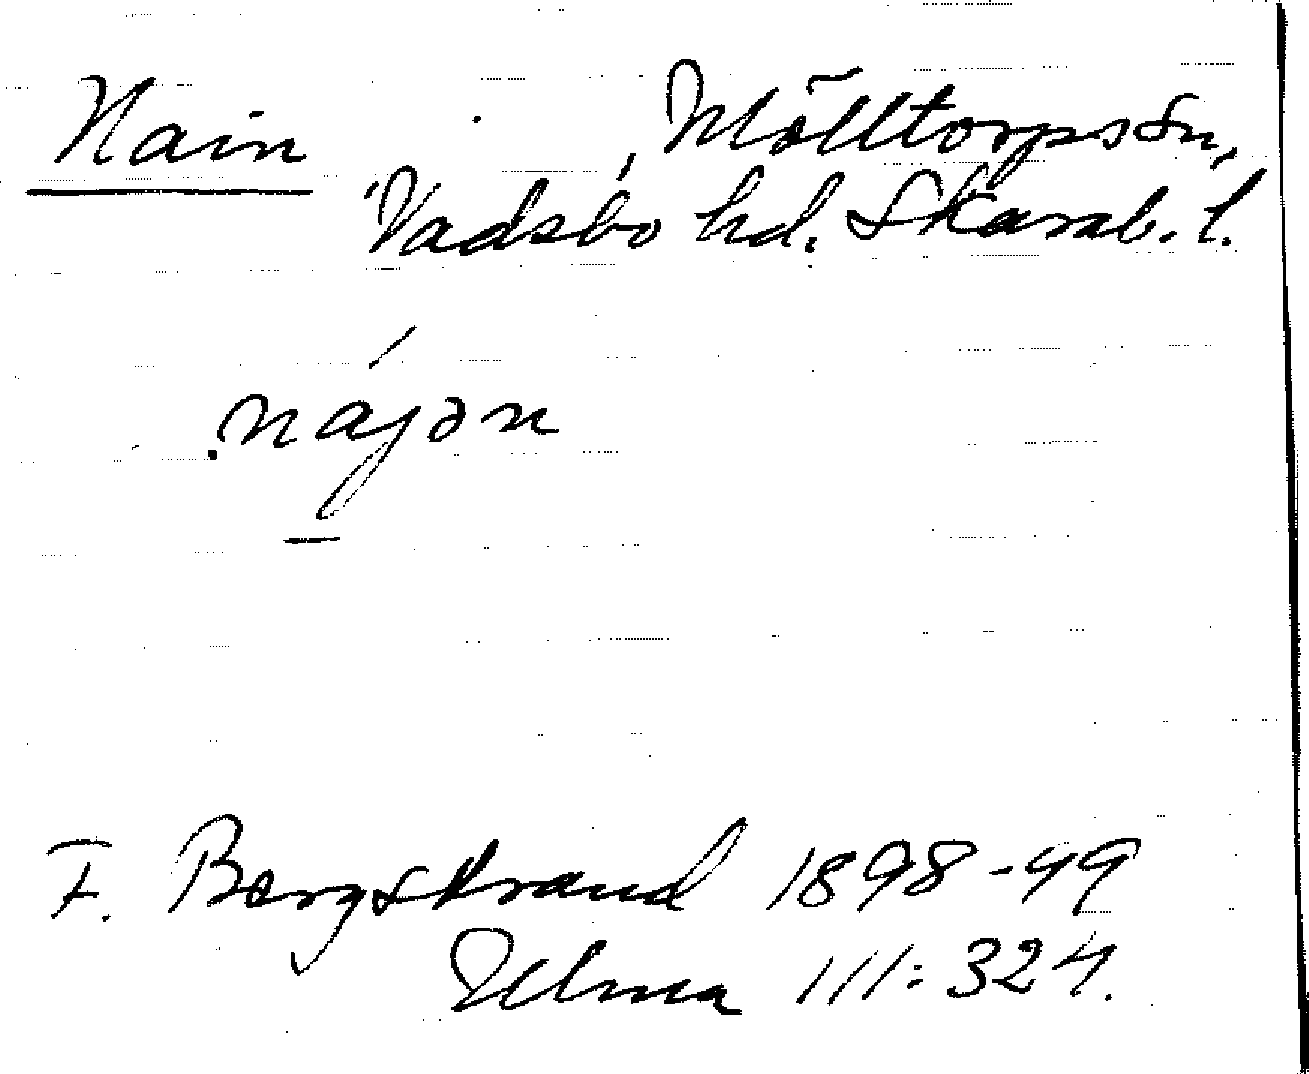 Nain , Mölltorps sn,
Vadsbo hd. Skarab. l.
nájən
F. Bergstrand 1898-99
Ulma 111:324.